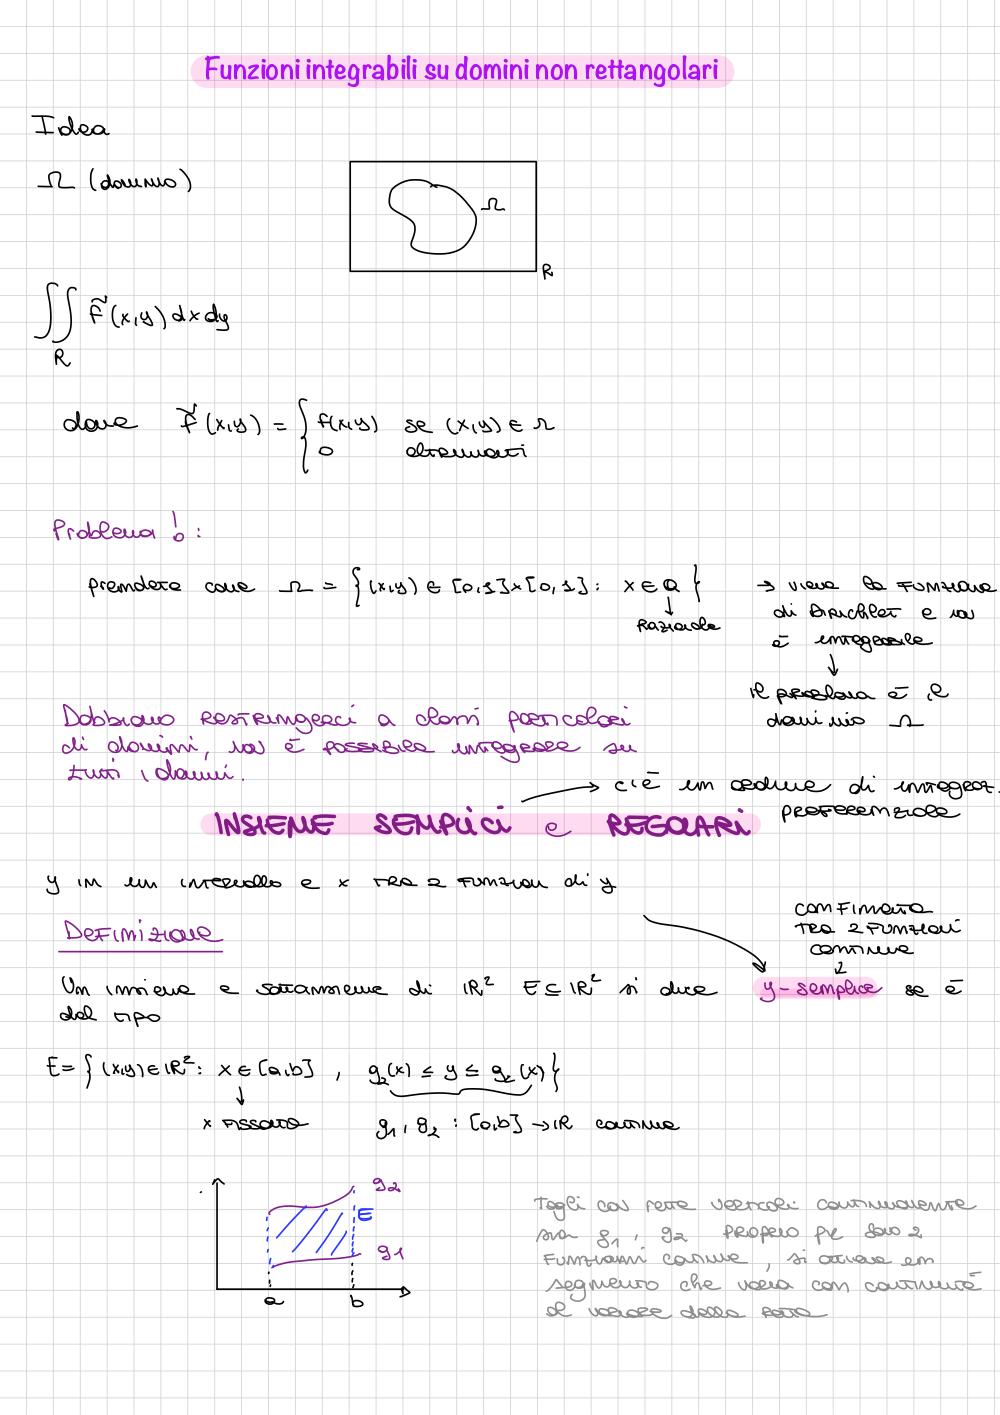 Funzioni integrabili su domini non rettangolari
Idea
Ω (dominio)
Ω
R
∬ f̃(x,y) dx dy
R
dove f̃(x,y) = { f(x,y) se (x,y) ∈ Ω
0 altrimenti
Problema !:
prendere come Ω = {(x,y) ∈ [0,1]×[0,1]: x ∈ Q}
↓
Razionale
→ viene la funzione
di Dirichlet e non
è integrabile
↓
il problema è il
dominio Ω
Dobbiamo restringerci a classi particolari
di domini, non è possibile integrare su
tutti i domini.
→ c'è un ordine di integraz.
preferenziale
INSIEME SEMPLICI e REGOLARI
y in un intervallo e x tra 2 funzioni di y
Definizione
confinato
tra 2 funzioni
continue
Un insieme e sottoinsieme di ℝ² E ⊆ ℝ² si dice y-semplice se è
del tipo
E = {(x,y) ∈ ℝ²: x ∈ [a,b] , g₂(x) ≤ y ≤ g₂(x)}
↓
x fissato
g₁, g₂ : [a,b] → ℝ continue
g2
E
g1
a
b
Tagli con rette verticali continuamente
sia g₁, g₂ proprio pe sono 2
funzioni continue, si ottiene un
segmento che varia con continuità
al variare della retta